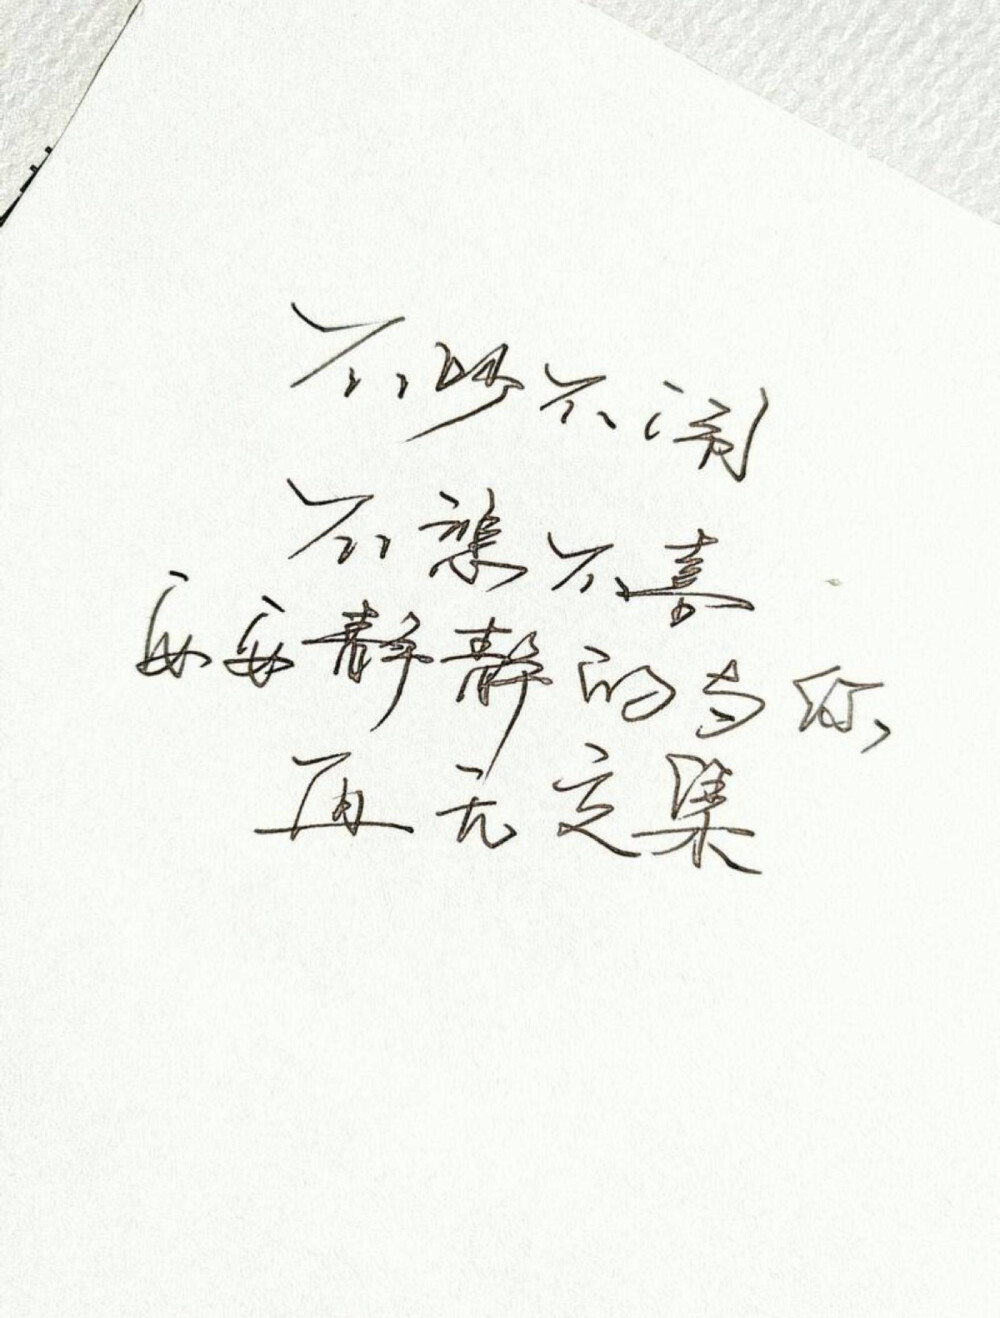 不吵不闹
不悲不喜
安安静静的与你，
再无交集